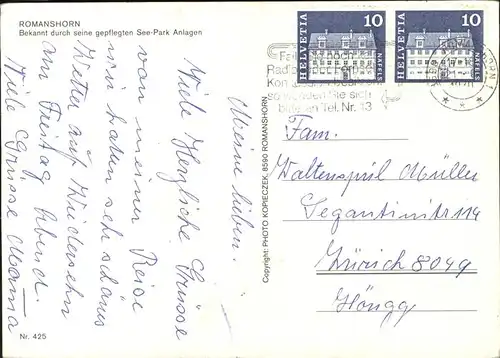 ROMANSHORN
Bekannt durch seine gepflegten See-Park Anlagen
Meine Lieben.
Viele Herzliche Grüsse
von meiner Reise
wir haben schönes
Wetter auf Wiedersehn
am Freitag Abend.
Viele Grüsse Mama
Nr. 425
Copyright: PHOTO KOPIECZEK, 8590 ROMANSHORN
HELVETIA 10 NÄFELS
HELVETIA 10 NÄFELS
so wenden Sie sich
bitte an Tel. Nr. 13
Fam.
Waltenspül Müller
Segantinistr 114
Zürich 8049
Höngg